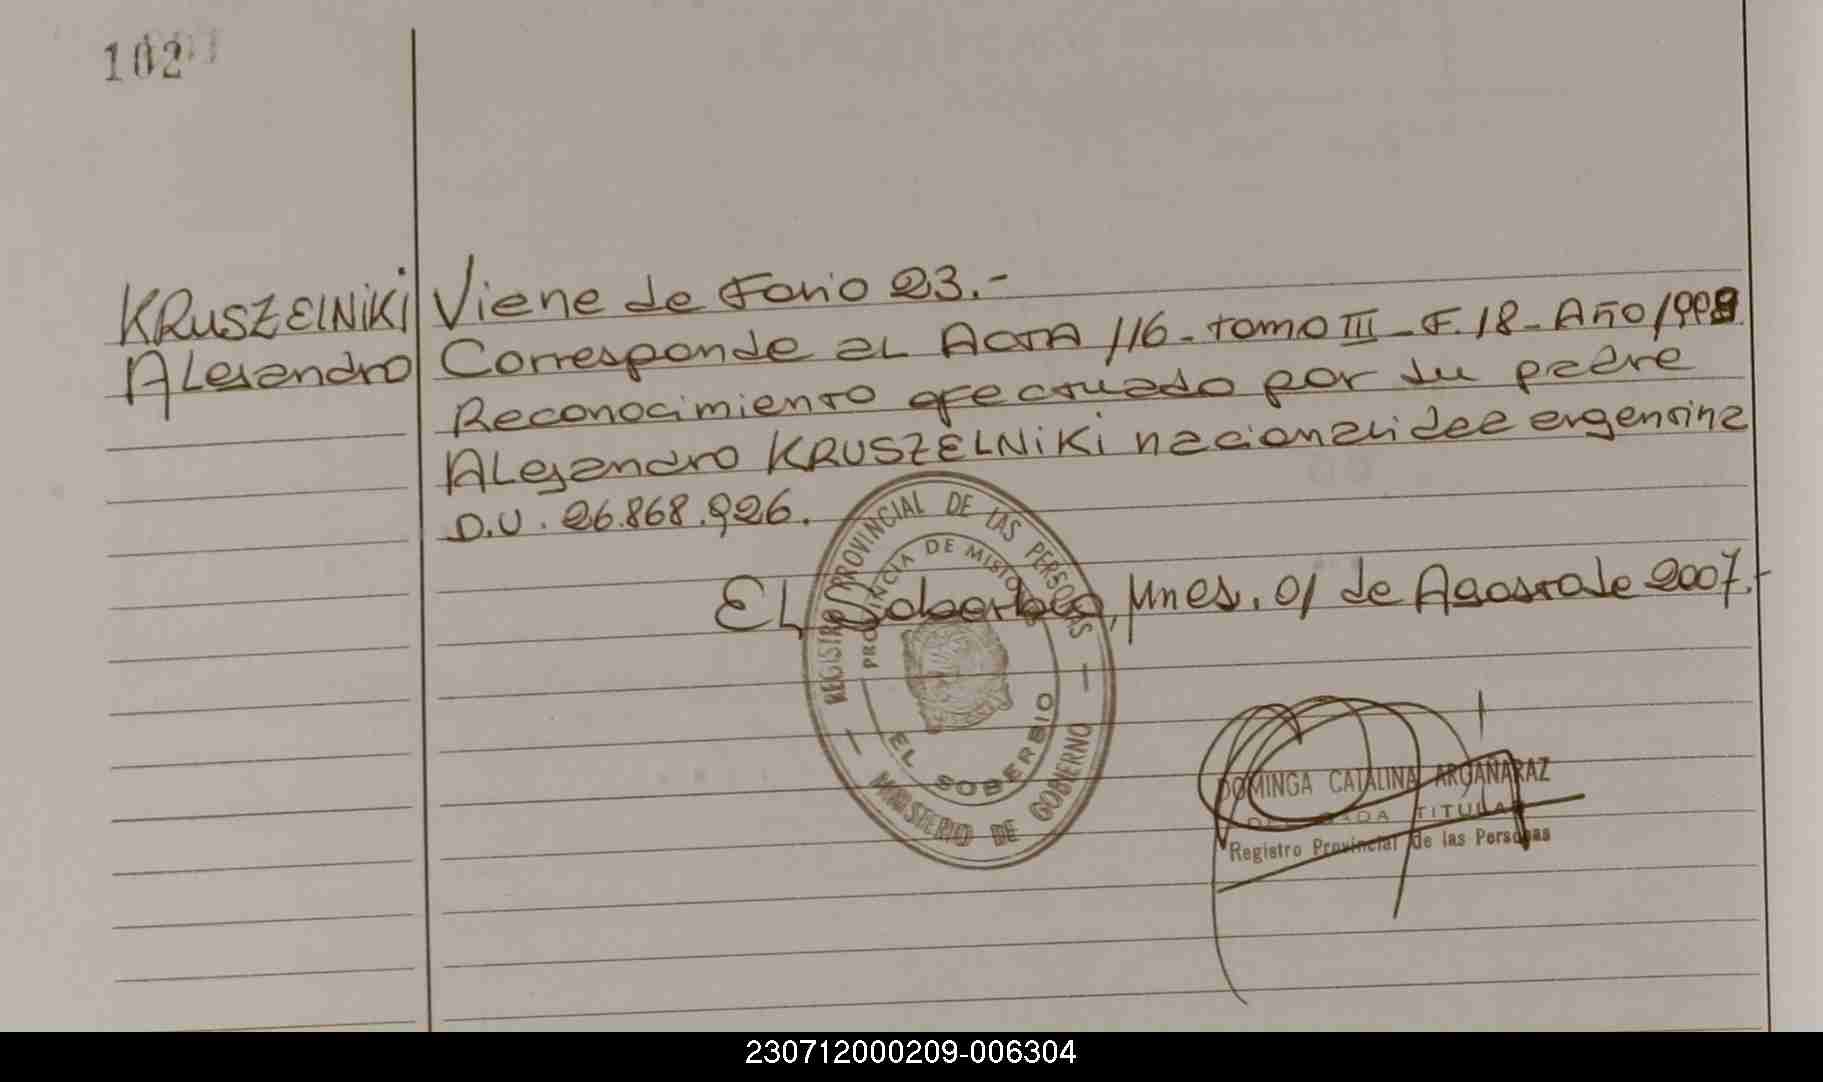 102
KRUSZELNIKI
Alejandro
Viene de Folio 23.-
Corresponde al Acta 116 - tomo III - F. 18 - Año 1998
Reconocimiento efectuado por su padre
Alejandro KRUSZELNIKI nacionalidad argentina
D.U. 26.868.926.
El Soberbio, Mnes, 01 de Agosto de 2007.-
REGISTRO PROVINCIAL DE LAS PERSONAS
PROVINCIA DE MISIONES
EL SOBERBIO
MINISTERIO DE GOBIERNO
DOMINGA CATALINA ARGAÑARAZ
DELEGADA TITULAR
Registro Provincial de las Personas
230712000209-006304